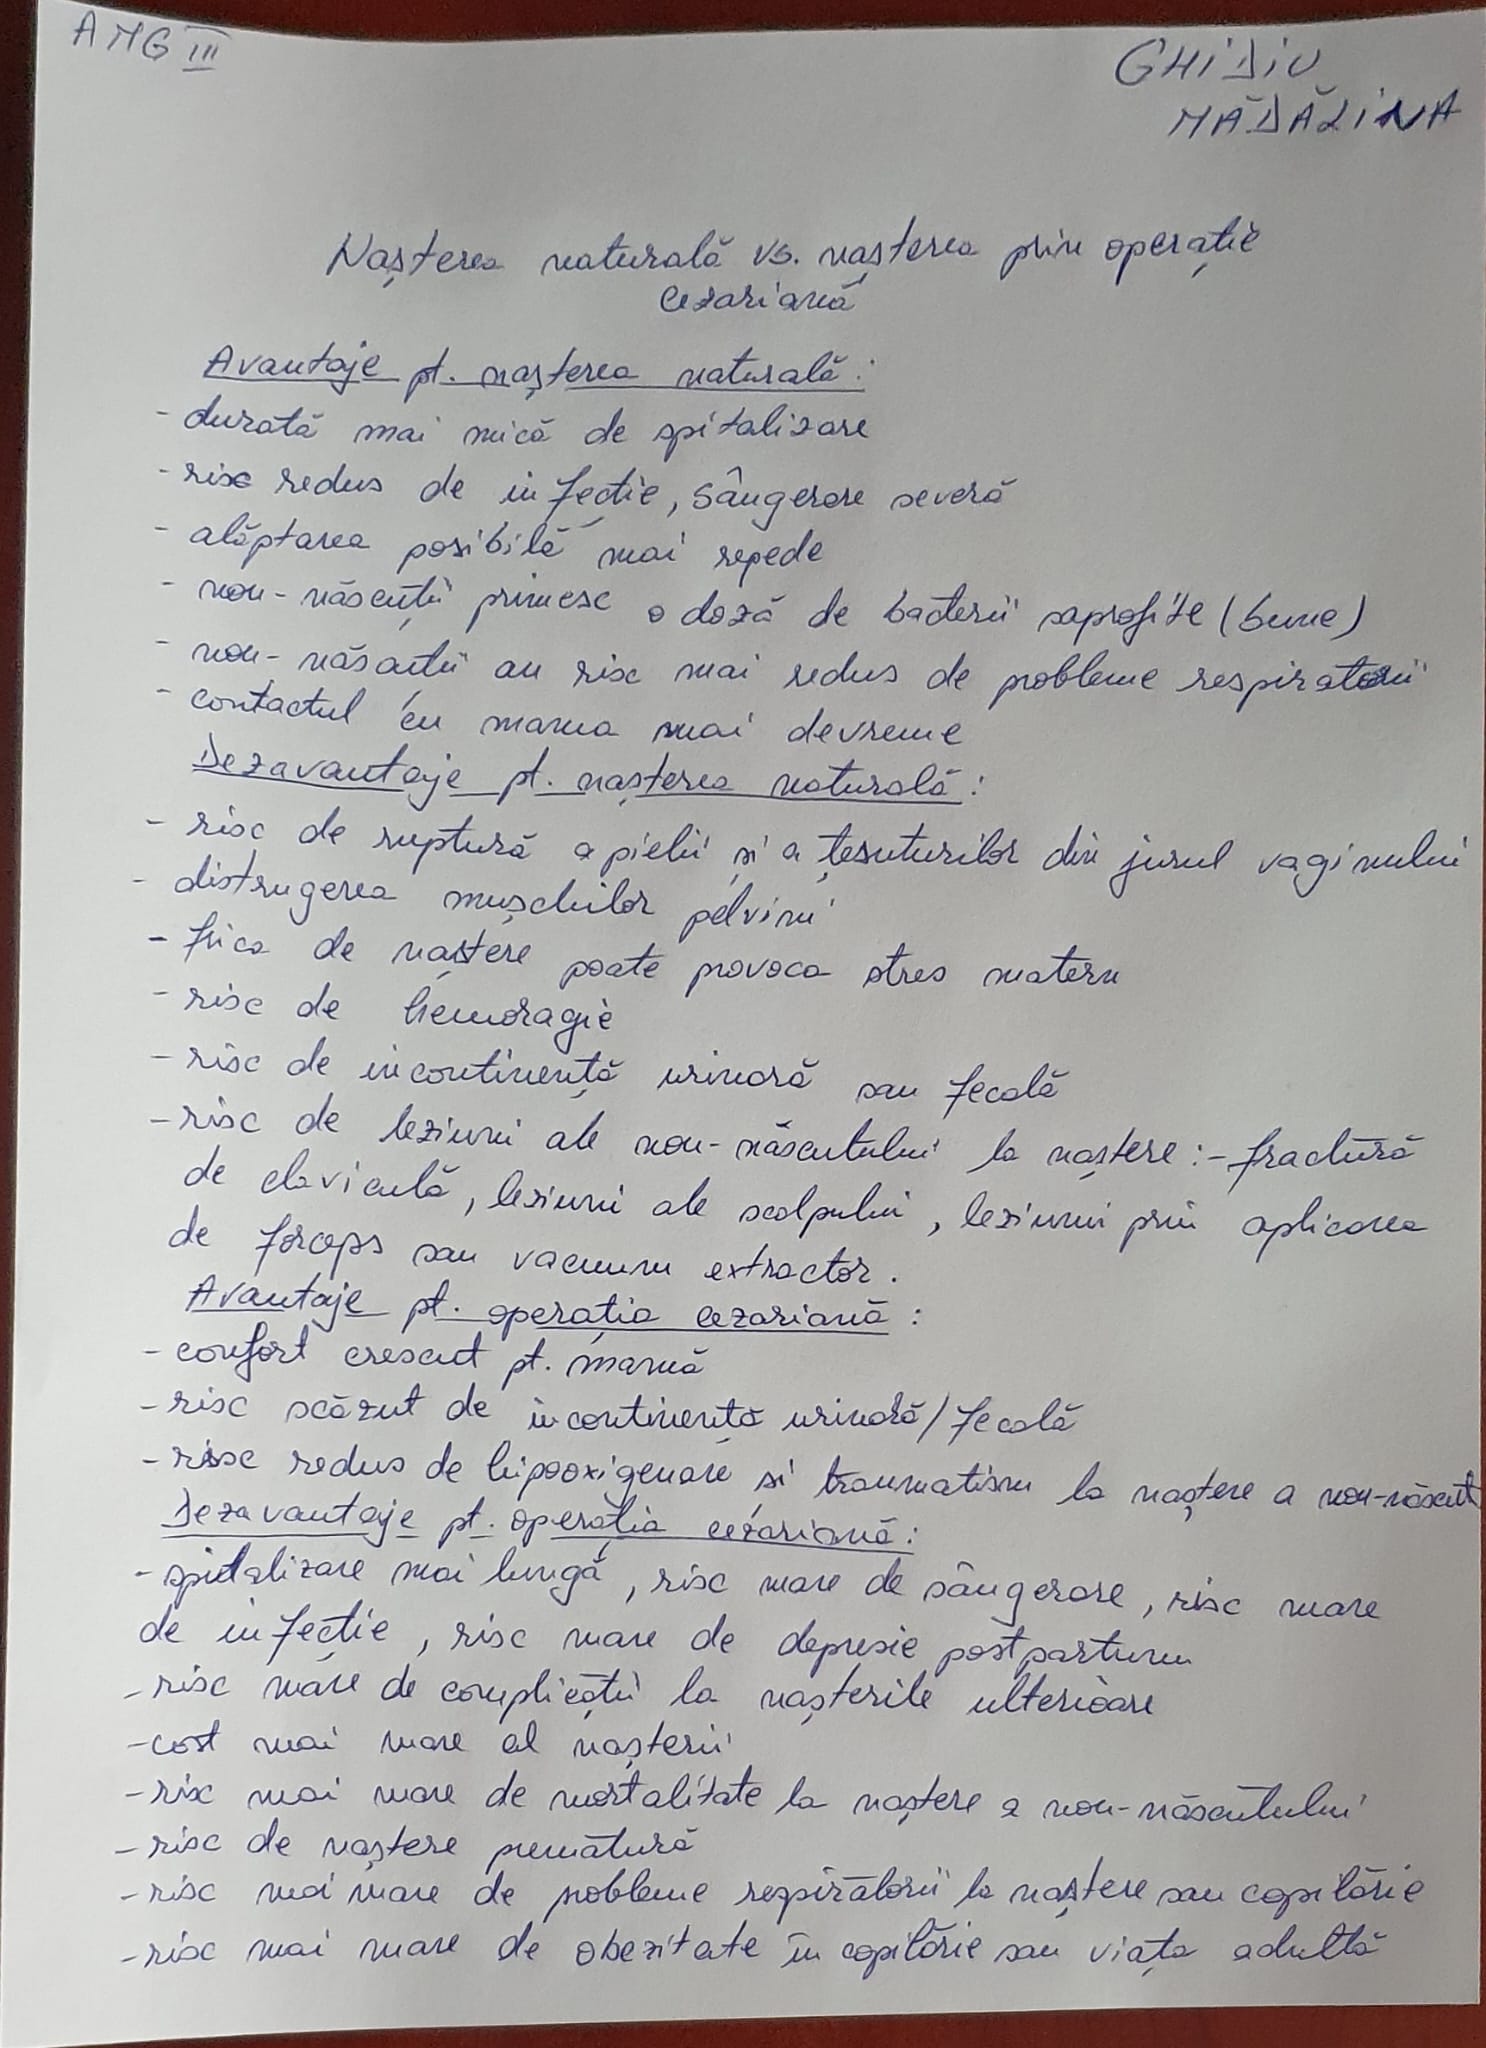 AMG III
GHIDIU
MĂDĂLINA
Nașterea naturală vs. nașterea prin operație
cezariană
Avantaje pt. nașterea naturală:
- durată mai mică de spitalizare
- risc redus de infecție, sângerare severă
- alăptarea posibilă mai repede
- nou-născuții primesc o doză de bacterii saprofite (bune)
- nou-născuții au risc mai redus de probleme respiratorii
- contactul cu mama mai devreme
Dezavantaje pt. nașterea naturală:
- risc de ruptură a pielii și a țesuturilor din jurul vaginului
- distrugerea mușchilor pelvini
- frica de naștere poate provoca stres matern
- risc de hemoragie
- risc de incontinență urinară sau fecală
- risc de leziuni ale nou-născutului la naștere: - fractură
de claviculă, leziuni ale scalpului, leziuni prin aplicarea
de forceps sau vacuum extractor.
Avantaje pt. operația cezariană:
- confort crescut pt. mamă
- risc scăzut de incontinență urinară/fecală
- risc redus de hipooxigenare și traumatism la naștere a nou-născut
Dezavantaje pt. operația cezariană:
- spitalizare mai lungă, risc mare de sângerare, risc mare
de infecție, risc mare de depresie postpartum
- risc mare de complicații la nașterile ulterioare
- cost mai mare al nașterii
- risc mai mare de mortalitate la naștere a nou-născutului
- risc de naștere prematură
- risc mai mare de probleme respiratorii la naștere sau copilărie
- risc mai mare de obezitate în copilărie sau viața adultă